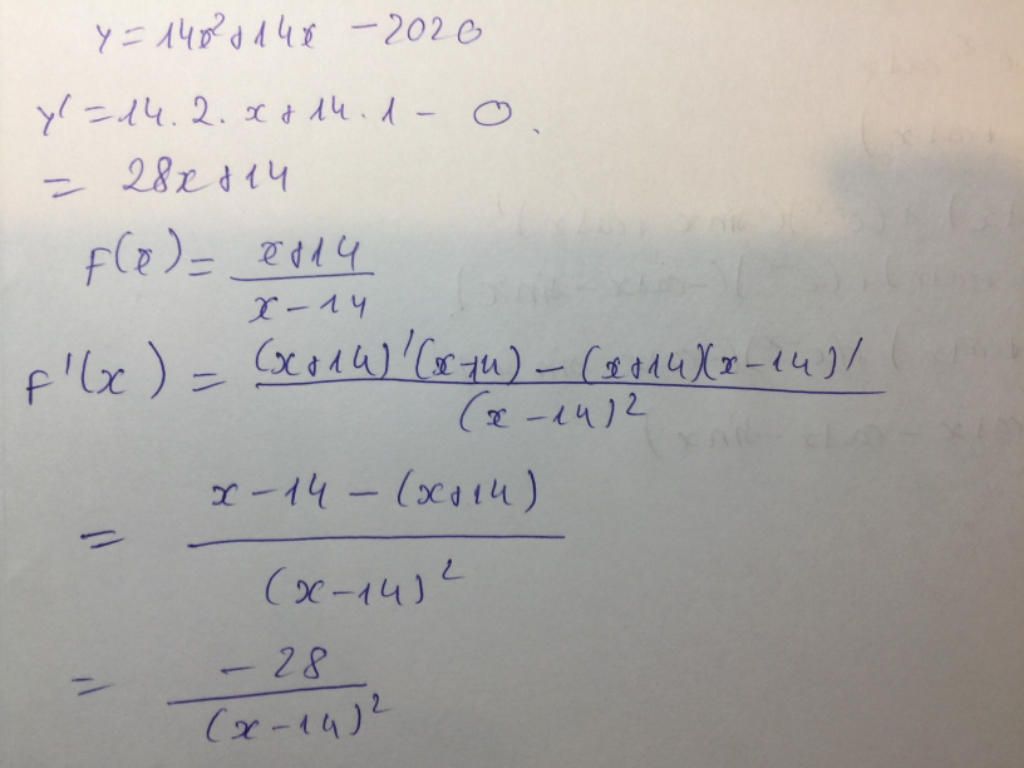 y = 14x² + 14x - 2020
y' = 14 . 2 . x + 14 . 1 - 0.
= 28x + 14
f(x) = (x + 14) / (x - 14)
f'(x) = ((x + 14)'(x - 14) - (x + 14)(x - 14)') / (x - 14)²
= (x - 14 - (x + 14)) / (x - 14)²
= -28 / (x - 14)²